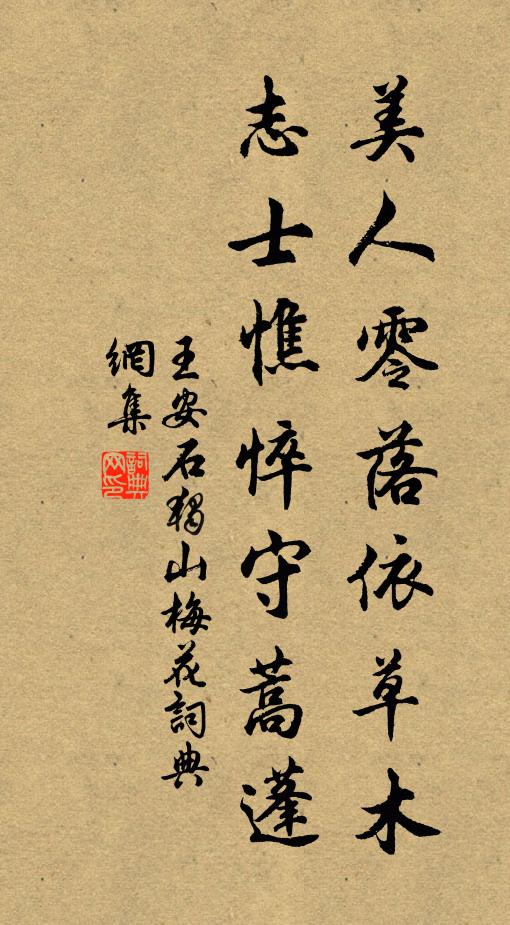 美人零落依草木
志士憔悴守蒿蓬
王安石獨山梅花詞典
網集
詞典
網印